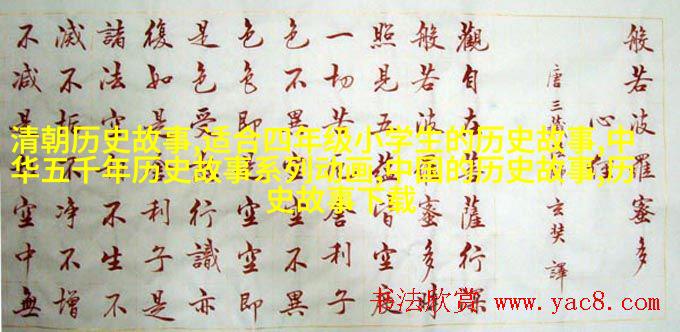 般若波羅蜜多
心經
唐三藏 玄奘譯
觀自在 薩行深
般若波羅蜜多時
照見五 皆空度
一切苦厄舍利子
色不異空空不異
色色即是空空即
是色受想行識亦
復如是 利子是
諸法空 不生不
滅不垢不淨不增
不減是 空中無
清朝历史故事,适合四年级小学生的历史故事,中
华五千年历史故事系列动画,中国的历史故事,历
史故事下载
书法欣赏 www.yac8.com